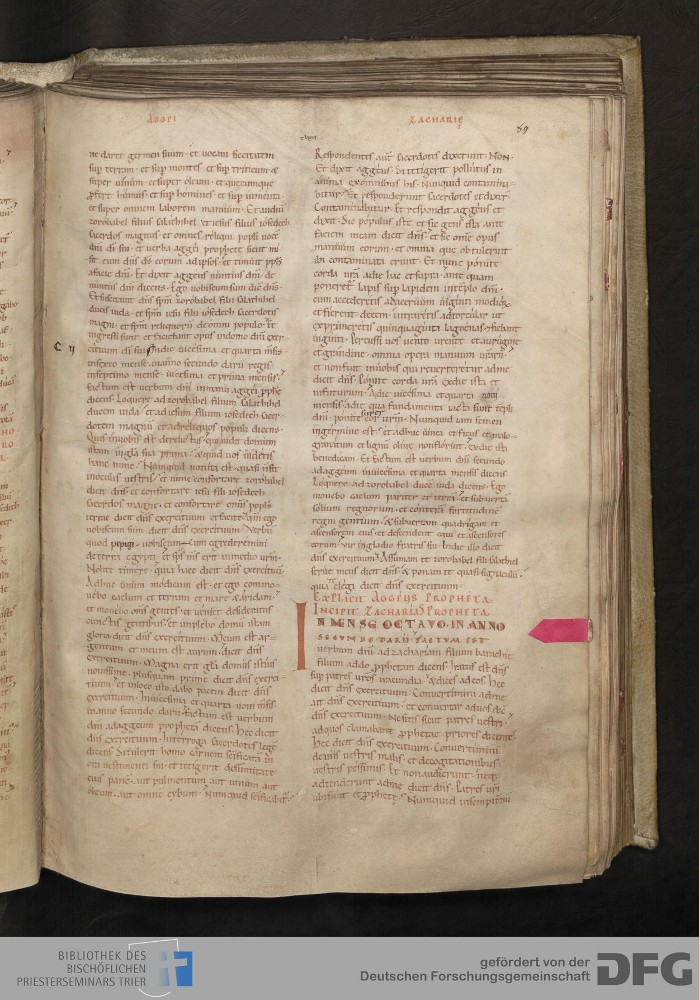 AGGEI
ZACHARIĘ
69
ne daret germen suum · et uocaui siccitatem
sup terram · et sup montes · et sup triticum &
super uinum · et super oleum · et quęcumque
ꝓfert humus · et sup homines et sup iumenta
et super omnem laborem manuum · Et audiuit
zorobabel filius salathihel · et iesus filius iosedech
sacerdos magnus · et omnes reliquę popli uocem
dni di sui · et uerba aggęi prophetę sicut mi
sit eum dns ds eorum ad ipsos · et timuit ppls
a facie dni · Et dixit aggeus nuntius dni · de
nuntiis dni dicens · Ego uobiscum sum dicit dns ·
Et suscitauit dns spm zorobabel filii salathihel
ducis iuda · et spm iesu filii iosedech sacerdotis
magni · et spm reliquorum de omni populo · Et
ingressi sunt et faciebant opus in domo dni exer
C ij
cituum di sui · In die uicesima et quarta msis
in sexto mense · in anno secundo darii regis
In septimo mense · uicesima et prima mensis ·
Factum est uerbum dni in manu aggęi pphę
dicens · Loquere ad zorobabel filium salathihel
ducem iuda · et ad iesum filium iosedech sacer-
dotem magnum · et ad reliquos populi dicens ·
Quis in uobis est derelictus · qui uidit domum
istam in gla sua prima · & quid uos uidetis
hanc nunc · Numquid non ita est · quasi n sit
in oculis uestris · et nunc confortare zorobabel
dicit dns · et confortare iesu fili iosedech
sacerdos magne · et confortare omis popls
terrę dicit dns exercituum · et facite qm ego
uobiscum sum dicit dns exercituum · Verbum
quod pepigi uobiscum · cum egrederemini
de terra egypti · et sps ms erit in medio urm ·
Nolite timere · quia hęc dicit dns exercituum ·
Adhuc unum modicum est · et ego commo-
uebo cęlum et terram et mare & aridam ·
et mouebo oms gentes · et ueniet desideratus
cunctis gentibus · et implebo domum istam
gloria dicit dns exercituum · Meum est ar-
gentum et meum est aurum · dicit dns
exercituum · Magna erit gla domus istius
nouissimę · plusquam primę dicit dns exerci-
tuum · et in loco isto dabo pacem dicit dns
exercituum · In uicesima et quarta noni msis
in anno secundo darii · factum est uerbum
dni ad aggęum propheta dicens · Hęc dicit
dns exercituum · Interroga sacerdotes legem
dicens · Si tulerit homo carnem scificata in
ora uestimenti sui · et tetigerit de summitate
eius pane · aut pulmentum aut uinum aut
oleum · aut omne cybum · Numquid scificabitur ·
Respondentes aut sacerdotes dixerunt · Non ·
Et dixit aggęus · Si tetigerit pollutus in
anima ex omnibus his · Numquid contamina-
bitur · Et responderunt sacerdotes et dixerunt ·
Contaminabitur · Et respondit aggęus et
dixit · Sic populus iste et sic gens ista ante
faciem meam dicit dns · et sic omne opus
manuum eorum · et omnia quę obtulerint
ibi contaminata erunt · Et nunc ponite
corda ura a die hac et supra · ante quam
poneret lapis sup lapidem in templo dni ·
cum accederetis ad aceruum uiginti modiorum
et fierent decem · intraretis ad torcular ut
exprimeretis quinquaginta lagoenas · et fiebant
uiginti · Percussi uos uento urente · et aurugine
et grandine · omnia opera manuum urarum ·
et non fuit in uobis qui reuerteretur ad me
dicit dns · Ponite corda ura ex die ista et
in futurum · A die uicesima et quarta noni
mensis · a die qua fundamenta iacta sunt templi
dni · ponite super cor urm · Numquid iam semen
in germine est · et adhuc uinea et ficus et malo-
granatum et lignum oliuę non floruit · ex die ista
benedicam · Et factum est uerbum dni secundo
ad aggęum in uicesima et quarta mensis dicens
Loquere ad zorobabel ducem iuda dicens · Ego
mouebo cęlum pariter et terram · et subuertam
solium regnorum · et conteram fortitudinem
regni gentium · & subuertam quadrigam et
ascensorem eius · et descendent equi et ascensores
eorum · uir in gladio fratris sui · In die illo dicit
dns exercituum · Assumam te zorobabel fili salathihel
serue meus dicit dns · & ponam te quasi signaculum ·
quia te elegi dicit dns exercituum
EXPLICIT AGGEUS PROPHETA
INCIPIT ZACHARIAS PROPHETA
IN MENSE OCTAVO · IN ANNO
SECUNDO DARII FACTUM EST
uerbum dni ad zachariam filium barachię
filium addo prophetam dicens · Iratus est dns
sup patres uros iracundia · & dices ad eos · Hęc
dicit dns exercituum · Conuertimini ad me
ait dns exercituum · et conuertar ad uos dicit
dns exercituum · Ne sitis sicut patres uestri ·
ad quos clamabant prophetę priores dicentes
Hęc dicit dns exercituum · Conuertimini
de uiis uestris malis · et de cogitationibus
uestris pessimis · Et non audierunt · neque
adtenderunt ad me dicit dns · Patres uri
ubi sunt et prophetę · Numquid in sempiternum
BIBLIOTHEK DES
BISCHÖFLICHEN
PRIESTERSEMINARS TRIER
gefördert von der
Deutschen Forschungsgemeinschaft
DFG